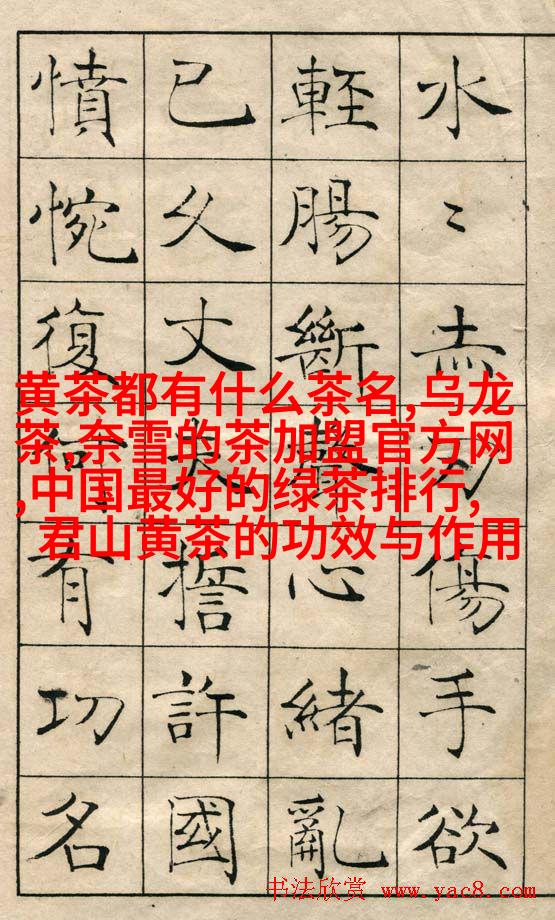 水〻赤刃傷手欲
輕腸斷聲心緒亂
已久丈夫誓許國
憤惋復何有功名
黄茶都有什么茶名,乌龙
茶,奈雪的茶加盟官方网
,中国最好的绿茶排行,
君山黄茶的功效与作用
书法欣赏 www.yac8.com